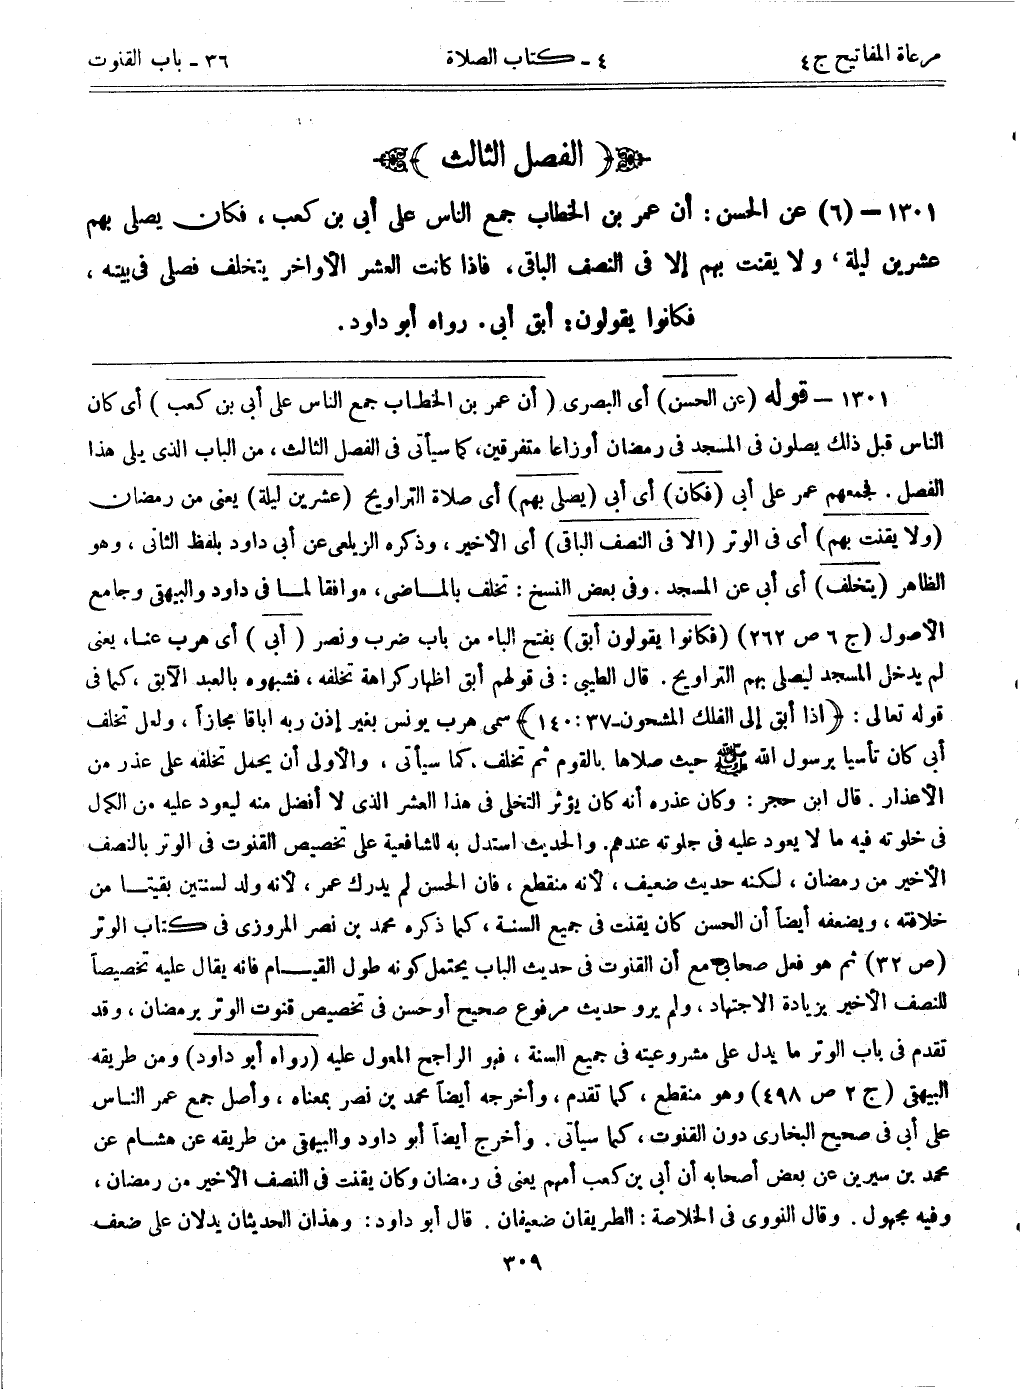 مرعاة المفاتيح ج ٤
٤ ـ كتاب الصلاة
٣٦ ـ باب القنوت
﴿ الفصل الثالث ﴾
١٣٠١ – (٦) عن الحسن: أن عمر بن الخطاب جمع الناس على أبي بن كعب، فكان يصلى بهم
عشرين ليلة، ولا يقنت بهم إلا فى النصف الباقى، فاذا كانت العشر الأواخر يتخلف فصلى فى بيته،
فكانوا يقولون: أبق أبي. رواه أبو داود.
١٣٠١ – قوله (عن الحسن) أى البصرى (أن عمر بن الخطاب جمع الناس على أبي بن كعب) أى كان
الناس قبل ذلك يصلون فى المسجد فى رمضان أوزاعا متفرقين، كما سيأتى فى الفصل الثالث، من الباب الذى يلى هذا
الفصل. فجمعهم عمر على أبي (فكان) أى أبي (يصلى بهم) أى صلاة التراويح (عشرين ليلة) يعنى من رمضان
(ولا يقنت بهم) أى فى الوتر (الا فى النصف الباقى) أى الأخير، وذكره الزيلعى عن أبي داود بلفظ الثانى، وهو
الظاهر (يتخلف) أى أبي عن المسجد. وفى بعض النسخ: تخلف بالماضى، موافقا لما فى داود والبيهقى وجامع
الأصول (ج ٦ ص ٢٦٢) (فكانوا يقولون أبق) بفتح الباء من باب ضرب ونصر (أبي) أى هرب عنا، يعنى
لم يدخل المسجد ليصلى بهم التراويح. قال الطيبى: فى قولهم أبق اظهار كراهة تخلفه، فشبهوه بالعبد الآبق، كما فى
قوله تعالى: ﴿اذا أبق إلى الفلك المشحون-٣٧: ١٤٠﴾ سمى هرب يونس بغير إذن ربه اباقا مجازاً، ولعل تخلف
أبي كان تأسيا برسول الله ﷺ حيث صلاها بالقوم ثم تخلف. كما سيأتى، والأولى أن يحمل تخلفه على عذر من
الأعذار. قال ابن حجر: وكان عذره أنه كان يؤثر التخلى فى هذا العشر الذى لا أفضل منه ليعود عليه من الكمل
فى خلوته فيه ما لا يعود عليه فى جلوته عندهم. والحديث استدل به للشافعية على تخصيص القنوت فى الوتر بالنصف
الأخير من رمضان، لكنه حديث ضعيف، لأنه منقطع، فان الحسن لم يدرك عمر، لأنه ولد لسنتين بقيتا من
خلافته، ويضعفه أيضاً أن الحسن كان يقنت فى جميع السنة، كما ذكره محمد بن نصر المروزى فى كتاب الوتر
(ص ٣٢) ثم هو فعل صحابي مع أن القنوت فى حديث الباب يحتمل كونه طول القيام فانه يقال عليه تخصيصاً
للنصف الأخير بزيادة الاجتهاد، ولم يرو حديث مرفوع صحيح أو حسن فى تخصيص قنوت الوتر برمضان، وقد
تقدم فى باب الوتر ما يدل على مشروعيته فى جميع السنة، فهو الراجح المعول عليه (رواه أبو داود) ومن طريقه
البيهقى (ج ٢ ص ٤٩٨) وهو منقطع، كما تقدم، وأخرجه أيضاً محمد بن نصر بمعناه، وأصل جمع عمر الناس
على أبي فى صحيح البخارى دون القنوت، كما سيأتى. وأخرج أيضاً أبو داود والبيهقى من طريقه عن هشام عن
محمد بن سيرين عن بعض أصحابه أن أبي بن كعب أمهم يعنى فى رمضان وكان يقنت فى النصف الأخير من رمضان،
وفيه مجهول. وقال النووى فى الخلاصة: الطريقان ضعيفان. قال أبو داود: وهذان الحديثان يدلان على ضعف
٣٠٩